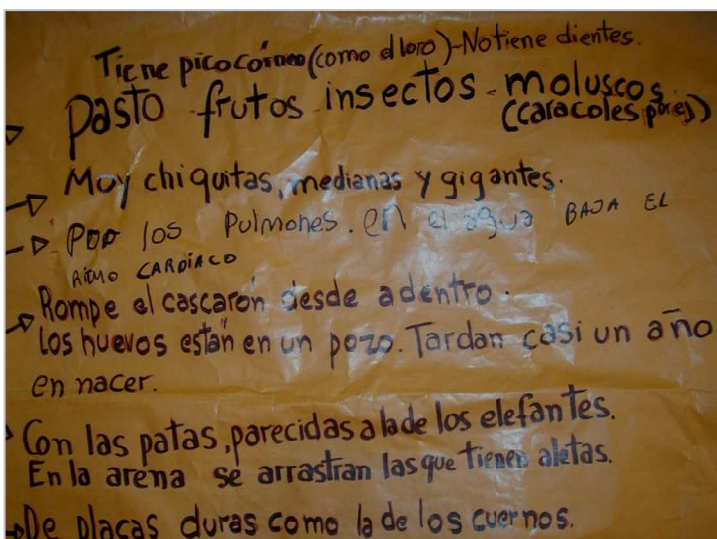 Tiene pico córneo (como el loro)-No tiene dientes.
pasto frutos insectos - moluscos.
(caracoles peces)
Muy chiquitas, medianas y gigantes.
Por los Pulmones. en el agua BAJA EL
RITMO CARDÍACO
Rompe el cascarón desde adentro.
Los huevos están en un pozo. Tardan casi un año
en nacer.
Con las patas, parecidas a la de los elefantes.
En la arena se arrastran las que tienen aletas.
De placas duras como la de los cuernos.